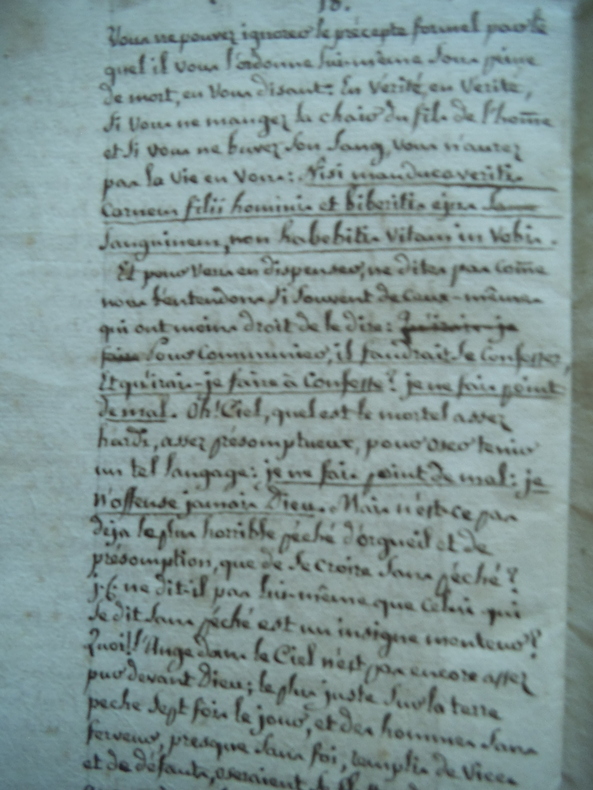 18.
Vous ne pouvez ignorer le précepte formel par le
quel il vous l'ordonne lui-même sous peine
de mort, en vous disant: En vérité, en vérité,
si vous ne mangez la chair du fils de l'hom̄e
et si vous ne buvez son sang, vous n'aurez
pas la vie en vous: Nisi manducaveritis
Carnem filii hominis et biberitis ejus
Sanguinem, non habebitis vitam in vobis.
Et pour vous en dispenser, ne dites pas com̄e
nous l'entendons si souvent de ceux-mêmes
qui ont moins droit de le dire: Qu'irais-je
faire Pour Communier, il faudrait se Confesser,
Et qu'irais-je faire à Confesse? je ne fais point
de mal. Oh! Ciel, quel est le mortel assez
hardi, assez présomptueux, pour oser tenir
un tel langage: je ne fais point de mal: je
n'offense jamais Dieu. Mais n'est-ce pas
déja le plus horrible péché d'orgueil et de
présomption, que de se croire sans péché?
j.C. ne dit-il pas lui-même que celui qui
se dit sans péché est un insigne menteur?
Quoi! l'Ange dans le Ciel n'est pas encore assez
pur devant Dieu; le plus juste sur la terre
peche sept fois le jour, et des hommes sans
ferveur, presque sans foi, remplis de vices
et de défauts, oseraient